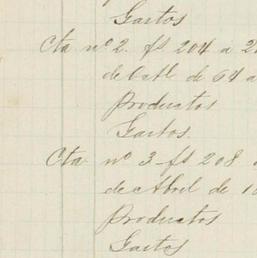 Gastos
Cta nº 2. fs 204 a 2
de Octe de 64 a
Productos
Gastos.
Cta nº 3 fs 208
de Abril de 1
Productos
Gastos